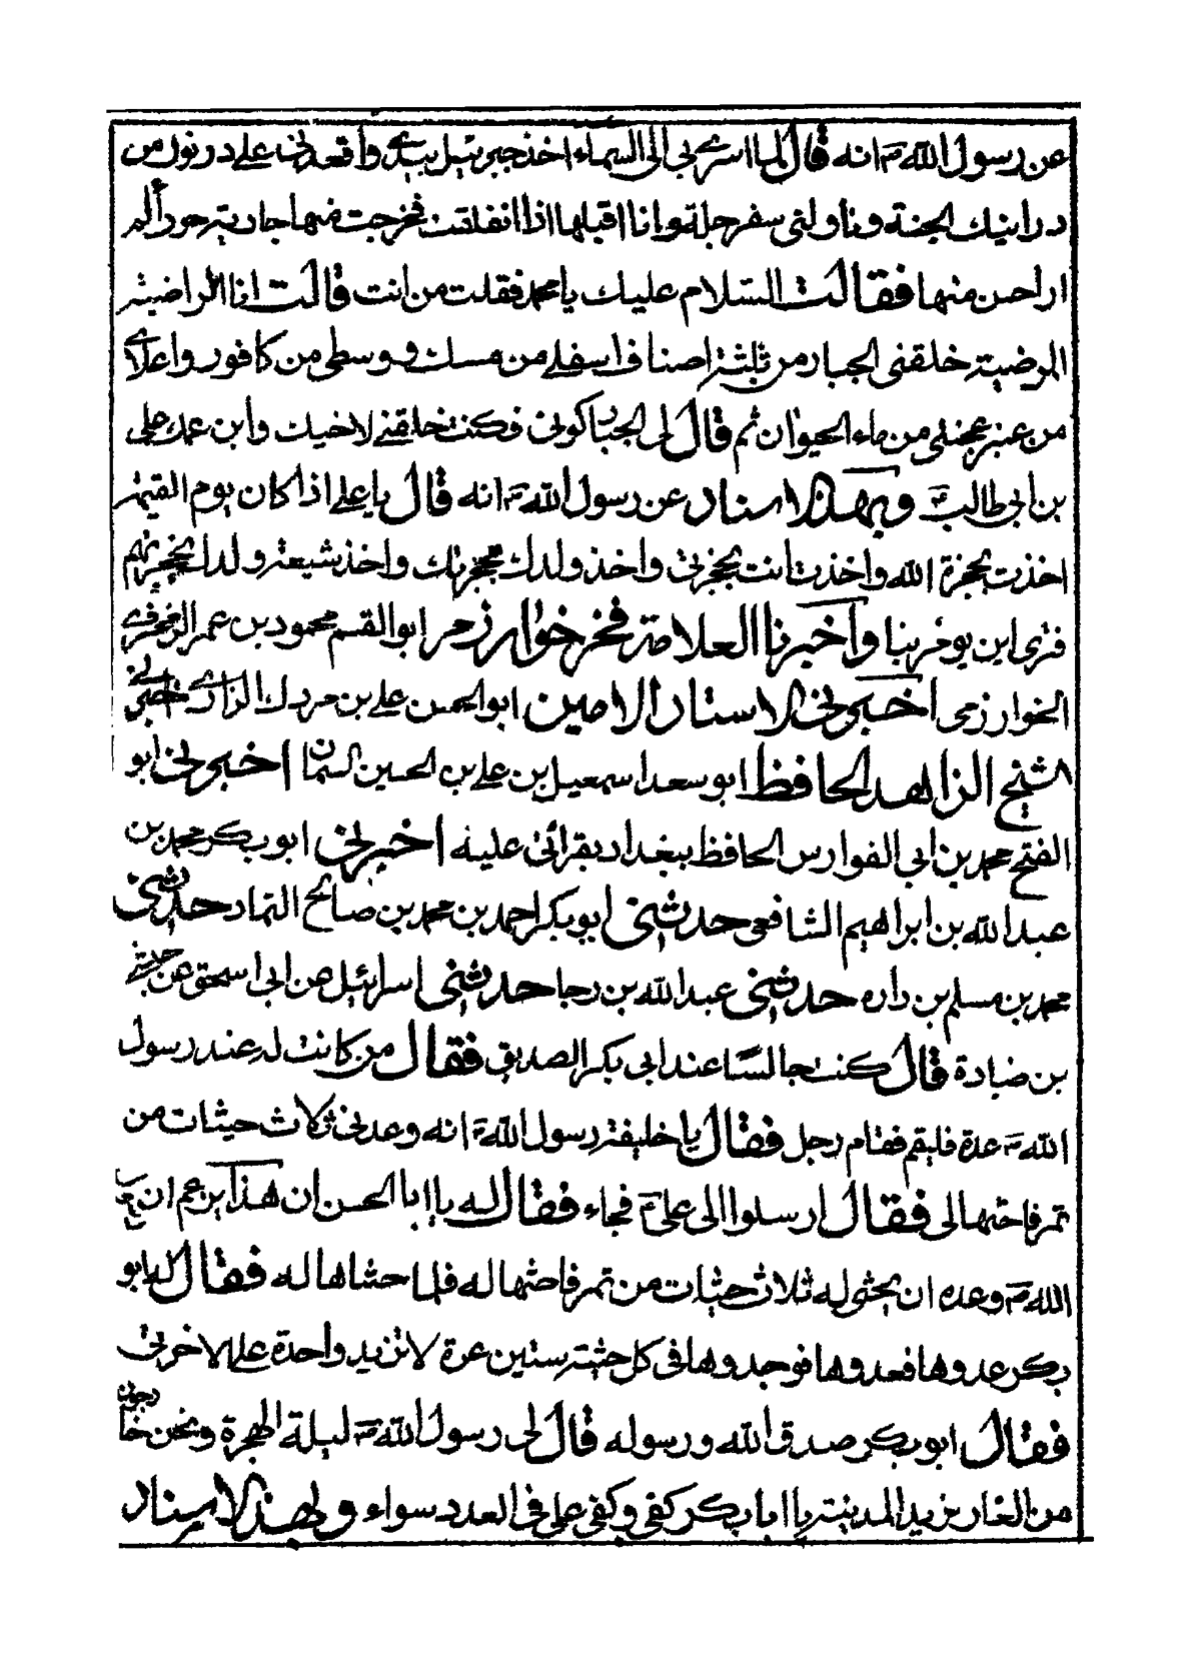 عن رسول الله ص انه قال لما اسرى بى الى السماء اخذ جبرئيل بيدى واقعدنى على درنوك من
درانيك الجنة وناولنى سفرجلة وانا اقبلها اذا انفلقت فخرجت منها جارية حوراء لم
ار احسن منها فقالت السلام عليك يا محمد فقلت من انت قالت انا الراضية
المرضية خلقنى الجبار من ثلثة اصناف اسفلى من مسك ووسطى من كافور واعلاى
من عنبر عجننى من ماء الحيوان ثم قال لى الجبار كونى فكنت خلقنى لاخيك وابن عمك على
بن ابى طالب ع وبهذا الاسناد عن رسول الله ص انه قال يا على اذا كان يوم القيمة
اخذت بحجزة الله واخذت انت بحجزتى واخذ ولدك بحجزتك واخذ شيعة ولدك بحجزتهم
فترى اين يومر بنا واخبرنا العلامة فخر خوارزم ابو القسم محمود بن عمر الزمخشرى
الخوارزمى اخبرنى الاستاد الامين ابو الحسن على بن مردك الرازى اخبرنى
الشيخ الزاهد الحافظ ابو سعد اسمعيل بن على بن الحسين السمان اخبرنى ابو
الفتح محمد بن ابى الفوارس الحافظ ببغداد بقرائتى عليه اخبرنى ابو بكر محمد بن
عبد الله بن ابراهيم الشافعى حدثنى ابو بكر احمد بن محمد بن صالح التمار حدثنى
محمد بن مسلم بن داره حدثنى عبد الله بن رجا حدثنى اسرائيل عن ابى اسحق عن حبشى
بن ضبادة قال كنت جالسا عند ابى بكر الصديق فقال من كانت له عند رسول
الله ص عدة فليقم فقام رجل فقال يا خليفة رسول الله ص انه وعدنى ثلاث حيثات من
تمر فاحثها لى فقال ارسلوا الى على ع فجاء فقال له يا ابا الحسن ان هذا يزعم ان
الله ص وعده ان يحثى له ثلاث حثيات من تمر فاحثها له فلما حثاها له فقال له ابو
بكر عدوها فعدوها فوجدوها فى كل حثية ستين عرة لا تزيد واحدة على الاخرى
فقال ابو بكر صدق الله ورسوله قال لى رسول الله ص ليلة الهجرة ونحن خارجون
من الغار نريد المدينة يا ابا بكر كفى وكفى على فى العدد سواء وبهذا الاسناد